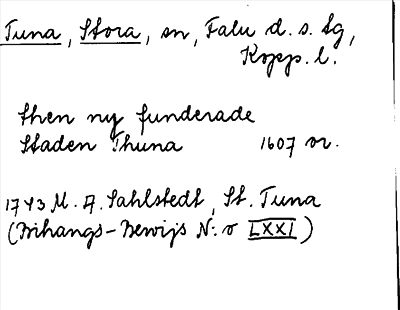 Tuna, Stora, sn, Falu d. s. tg,
Kopp. l.
then ny funderade
Staden Thuna 1607 or.
1743 M. A. Sahlstedt, St. Tuna
(Bihangs-Bewijs N:o LXXI)